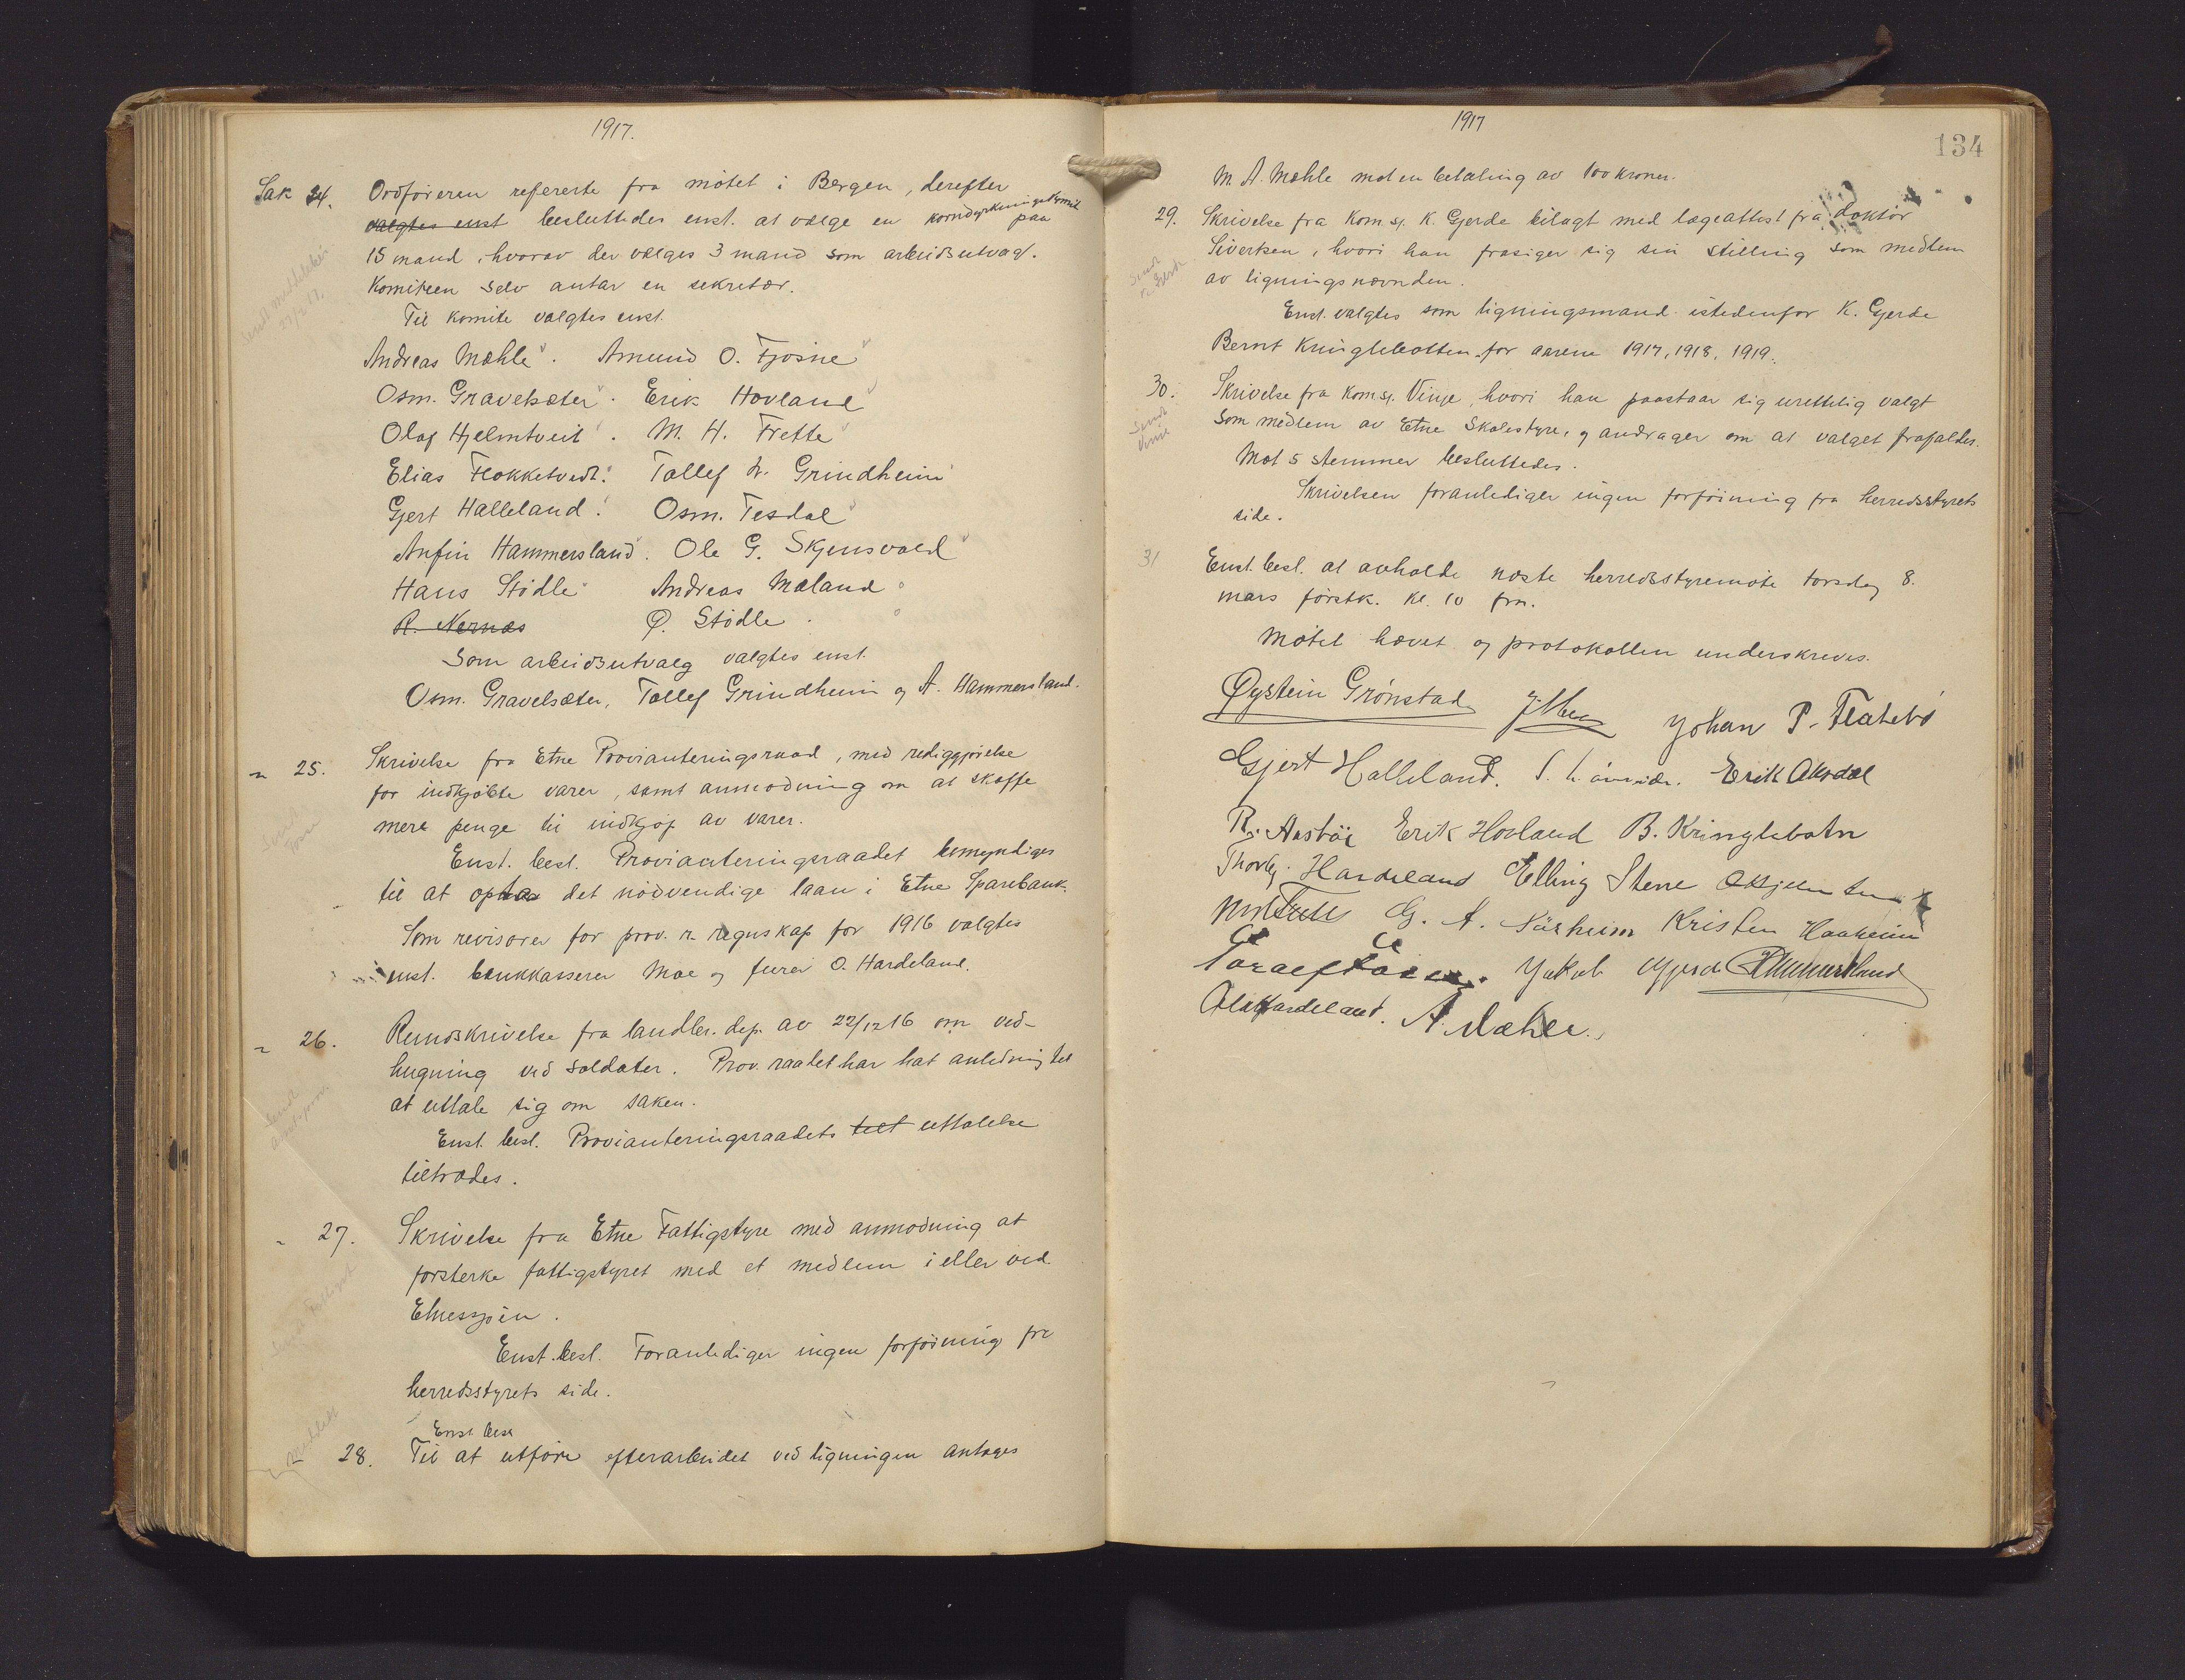 1917.
Sak 24. Ordføreren refererte fra møtet i Bergen, derefter
valgtes enst besluttedes enst. at vælge en korndyrkningskomite paa
15 mand, hvorav der vælges 3 mand som arbeidsutvag.
Komiteen selv antar en sekretær.
Til komite valgtes enst.
Andreas Mæhle. Amund O. Fjøsne
Osm. Gravelsæter. Erik Hovland
Olaf Hjelmtveit. M. H. Frette
Elias Flokketvedt. Tollef Grindheim
Gjert Halleland. Osm. Tesdal
Anfin Hammersland. Ole G. Skjensvold
Hans Stødle Andreas Mæland
R. Nernæs P. Stødle
Som arbeidsutvalg valgtes enst.
Osm. Gravelsæter, Tollef Grindheim og A. Hammersland.
" 25. Skrivelse fra Etne Provianteringsraad, med redigjørelse
for indkjøbte varer, samt anmodning om at skaffe
mere penge til indkjøp av varer.
Enst. besl. Provianteringsraadet bemyndiges
til at opta det nødvendige laan i Etne Sparebank.
Som revisorer for prov. r. regnskap for 1916 valgtes
enst. bankkasserer Moe og furer O. Hardeland.
" 26. Rundskrivelse fra landbr. dep. av 22/12 16 om ved-
hugning ved soldater. Prov. raadet har hat anledning til
at uttale sig om saken.
Enst. besl. Provianteringsraadets uttalelse
tiltrædes.
" 27. Skrivelse fra Etne Fattigstyre med anmodning at
forsterke fattigstyret med et medlem i eller ved
Etnessjøen.
Enst. besl. Foranlediger ingen forføining fra
herredsstyrets side.
Enst. besl
" 28. Til at utføre efterarbeidet ved ligningen antages
1917
134
M. A. Mæhle mot en betaling av 100 kroner.
29. Skrivelse fra Kom.sg. K. Gjerde bilagt med lægeattest fra doktor
Sivertsen, hvori han frasiger sig sin stilling som medlem
av ligningsnævnden.
Send
Gjerde
Enst. valgtes som ligningsmand istedenfor K. Gjerde
Bernt Kringlebotten for aarene 1917, 1918, 1919.
30. Skrivelse fra Kom.sg. Vinje, hvori han paastaar sig urettelig valgt
som medlem av Etne Skolestyre, og andrager om at valget frafaldes.
Send
Vinje
Mot 5 stemmer besluttedes.
Skrivelsen foranlediger ingen forføining fra herredsstyrets
side.
31 Enst. besl. at avholde næste herredsstyremøte torsdag 8.
mars førstk. kl. 10 fm.
Møtet hævet og protokollen underskreves.
Øystein Grønstad Johan P. Flatebø
Gjert Halleland. Erik Aksdal
R. Austbø Erik Hovland B. Kringlebotn
Thorbj. Hardeland Elling Stene
M H Frette G. A. Sørheim Kristen Haaheim
Jakob Gjerde A Hammersland
Olav Hardeland. A. Mæhle.